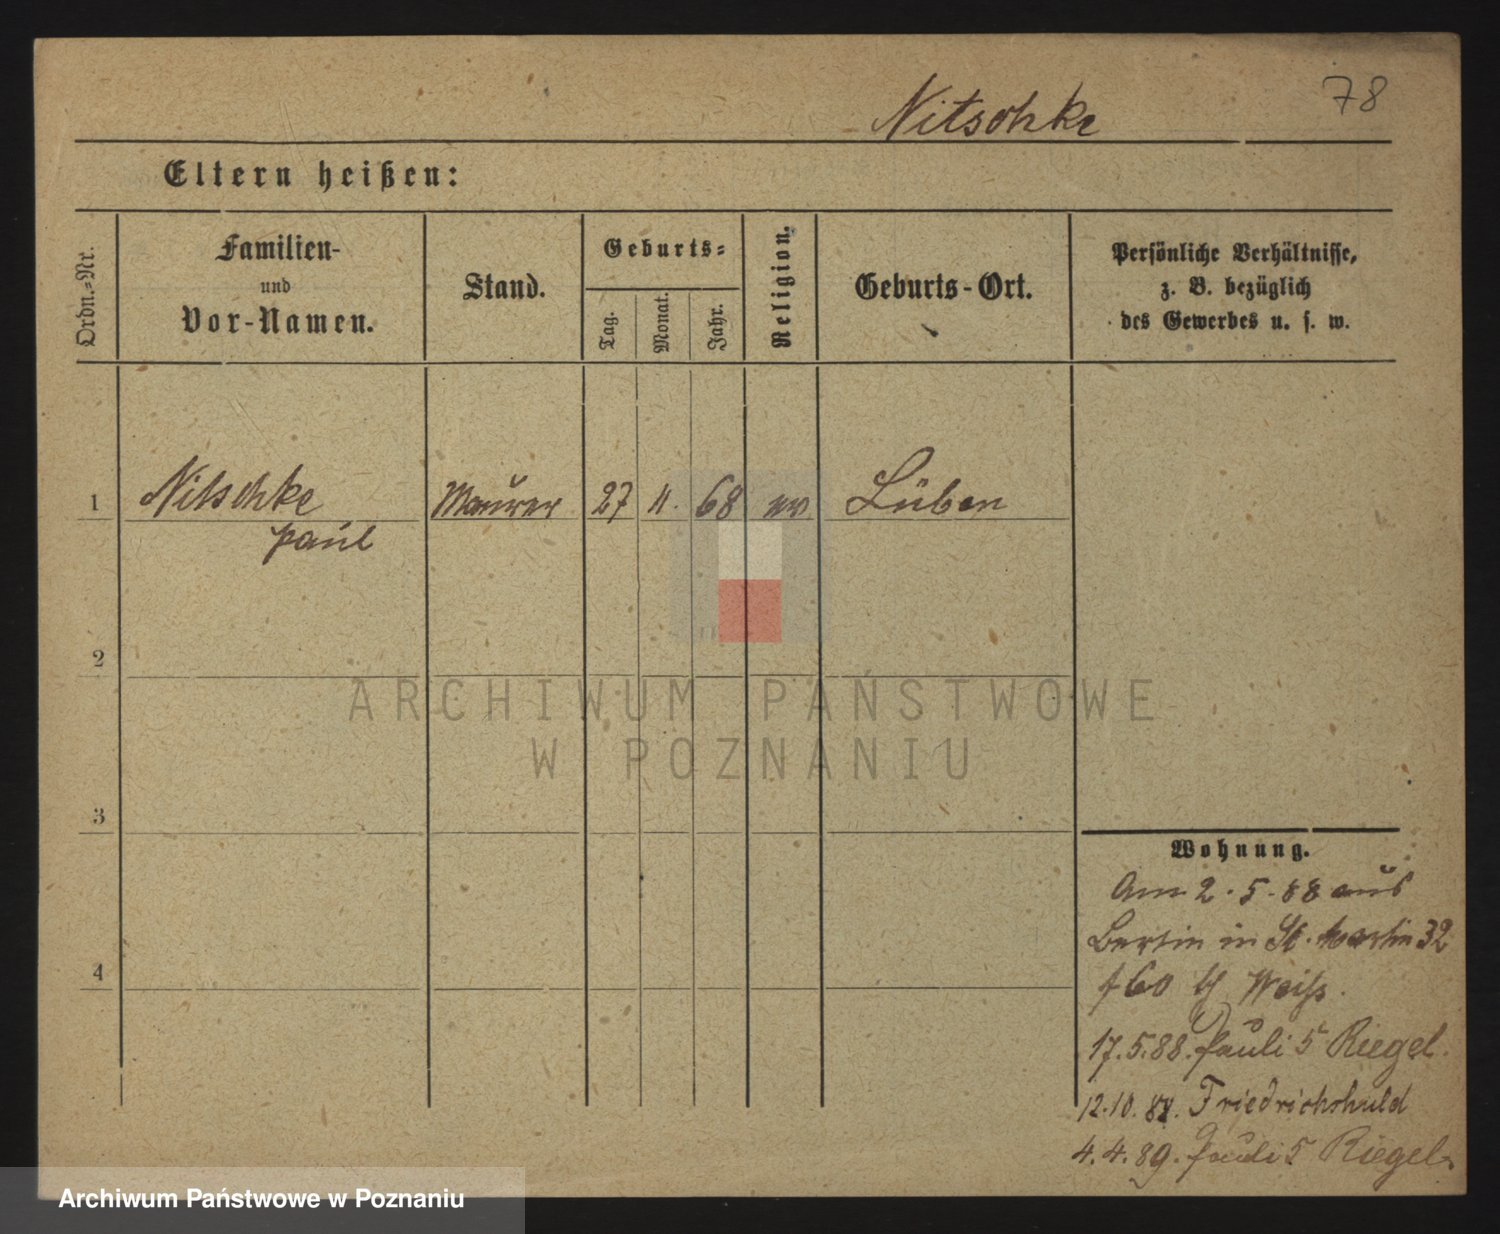 78
Nitschke
Eltern heißen:
Ordn.-Nr.
Familien-
und
Vor-Namen.
Stand.
Geburts-
Tag.
Monat.
Jahr.
Religion.
Geburts-Ort.
Persönliche Verhältnisse,
z. B. bezüglich
des Gewerbes u. s. w.
1 Nitschke Maurer 27 11. 68 ev Lüben
Paul
2
3
4
Wohnung.
Am 2.5.88 aus
Berlin in St. Martin 32
b Weiss.
17.5.88. Pauli 5 Riegel.
12.10.88. Friedrichshuld
4.4.89. Pauli 5 Riegel.
ARCHIWUM PAŃSTWOWE
W POZNANIU
Archiwum Państwowe w Poznaniu